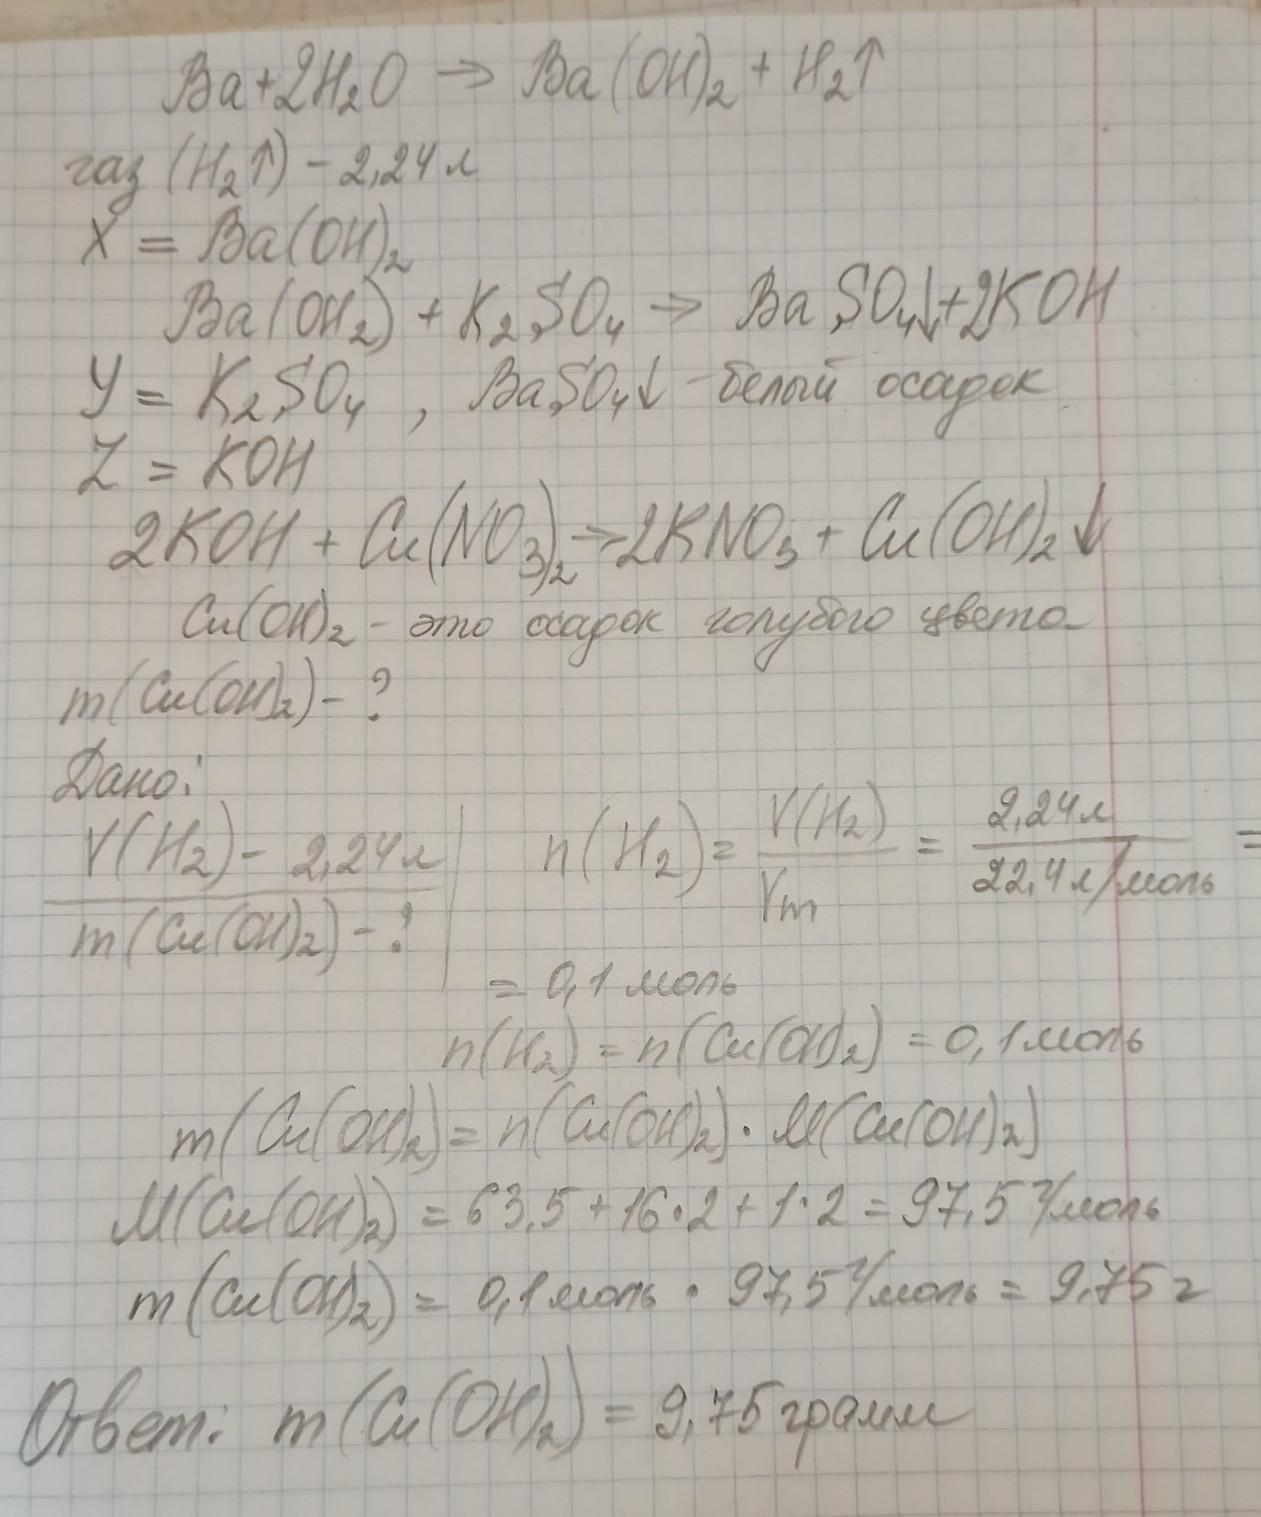 Ba+2H₂O → Ba(OH)₂ + H₂↑
газ (H₂↑) - 2,24 л
X = Ba(OH)₂
Ba(OH₂) + K₂SO₄ → BaSO₄↓+2KOH
Y = K₂SO₄ , BaSO₄↓ - белый осадок
Z = KOH
2KOH + Cu(NO₃)₂ → 2KNO₃ + Cu(OH)₂↓
Cu(OH)₂ - это осадок голубого цвета
m(Cu(OH)₂) - ?
Дано:
V(H₂) - 2,24 л
m(Cu(OH)₂) - ?
n(H₂) = V(H₂)/Vm = 2,24 л/22,4 л/моль =
= 0,1 моль
n(H₂) = n(Cu(OH)₂) = 0,1 моль
m(Cu(OH)₂) = n(Cu(OH)₂) · M(Cu(OH)₂)
M(Cu(OH)₂) = 63,5 + 16·2 + 1·2 = 97,5 г/моль
m(Cu(OH)₂) = 0,1 моль · 97,5 г/моль = 9,75 г
Ответ: m(Cu(OH)₂) = 9,75 грамм